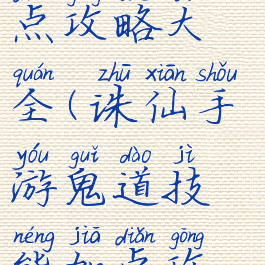 点攻略大
quán zhū xiān shǒu
全(诛仙手
yóu guǐ dào jì
游鬼道技
néng jiā diǎn gōng
能加点攻